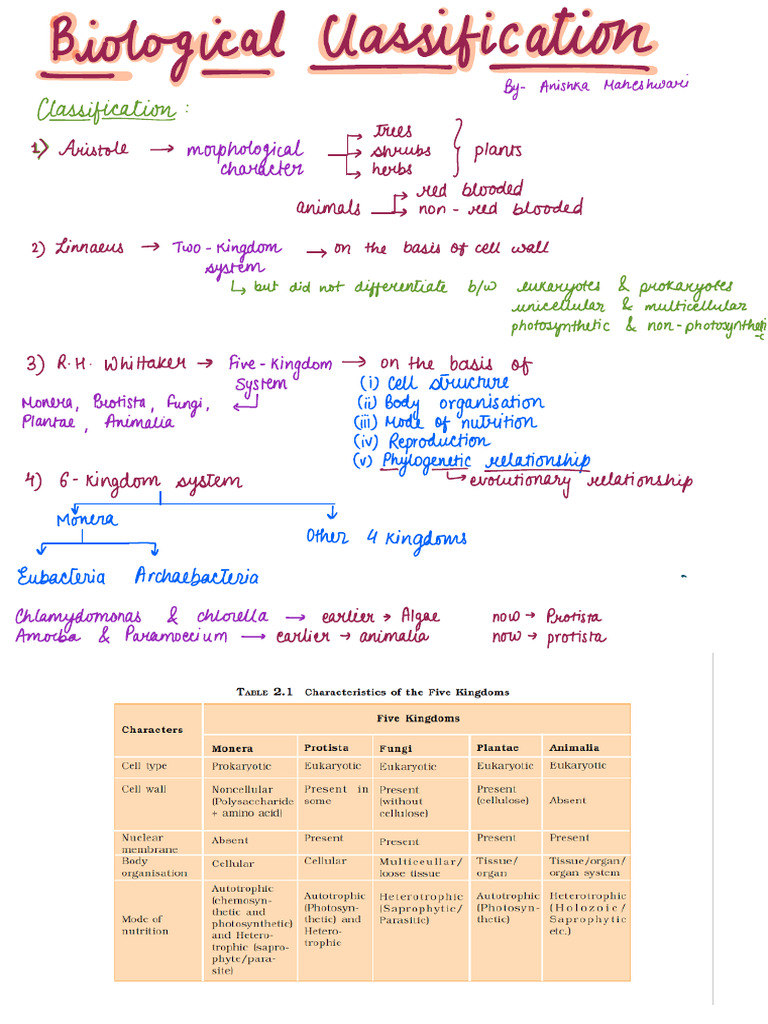 Biological Classification
By- Anishka Maheshwari
Classification :
1) Aristole → morphological character → trees
shrubs
herbs } plants
animals → red blooded
non - red blooded
2) Linnaeus → Two - Kingdom system → on the basis of cell wall
↳ but did not differentiate b/w eukaryotes & prokaryotes
unicellular & multicellular
photosynthetic & non-photosynthetic
3) R.H. Whittaker → Five-Kingdom System → on the basis of
(i) Cell structure
(ii) Body organisation
(iii) Mode of nutrition
(iv) Reproduction
(v) Phylogenetic relationship
↳ evolutionary relationship
Monera, Protista, Fungi,
Plantae, Animalia
4) 6 - Kingdom system
Monera
Other 4 Kingdoms
Eubacteria Archaebacteria
Chlamydomonas & chlorella → earlier → Algae now → Protista
Amoeba & Paramoecium → earlier → animalia now → protista
TABLE 2.1 Characteristics of the Five Kingdoms
Characters Five Kingdoms
Monera Protista Fungi Plantae Animalia
Cell type Prokaryotic Eukaryotic Eukaryotic Eukaryotic Eukaryotic
Cell wall Noncellular (Polysaccharide + amino acid) Present in some Present (without cellulose) Present (cellulose) Absent
Nuclear membrane Absent Present Present Present Present
Body organisation Cellular Cellular Multiceullar/ loose tissue Tissue/ organ Tissue/organ/ organ system
Mode of nutrition Autotrophic (chemosyn-thetic and photosynthetic) and Hetero-trophic (sapro-phyte/para-site) Autotrophic (Photosyn-thetic) and Hetero-trophic Heterotrophic (Saprophytic/ Parasitic) Autotrophic (Photosyn-thetic) Heterotrophic (Holozoic/ Saprophytic etc.)